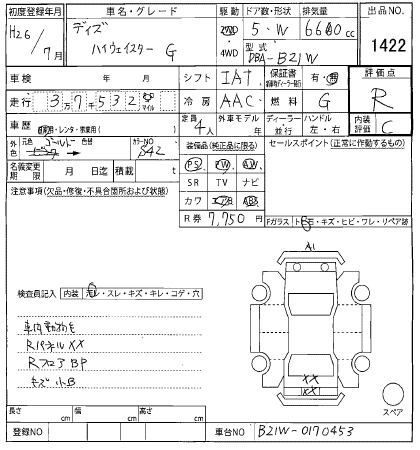 初度登録年月 車名・グレード 駆動 ドア数・形状 排気量 出品NO.
H26/7月 デイズ ハイウェイスター G 2WD・4WD 5・W 660cc 1422
型式 DBA-B21W
車検 年 月 シフト IAT 保証書 有・無 評価点 R
走行 3万7千532 km マイル 冷房 AAC 燃料 G
車歴 自家用・レンタ・事業用( ) 定員 4人 外車モデル 年 ディーラー 並行 ハンドル 左・右 内装評価 C
外色 元色 ゴールド 色替 カラーNO. S42 装備品(純正品に限る) セールスポイント(正常に作動するもの)
名義変更期限 月 日迄 積載 t PS PW AW
注意事項(欠品・修復・不具合箇所および状態) SR TV ナビ
カワ エアB ABS
R券 7,750円 Fガラス トビ石・キズ・ヒビ・ワレ・リペア跡
A1
検査員記入 内装 汚レ・スレ・キズ・キレ・コゲ・穴
Rパネル XX
Rフロア BP
キズ 小B
XX
XX
スペア
長さ cm 幅 cm 高さ cm
登録NO 車台NO B21W-0170453